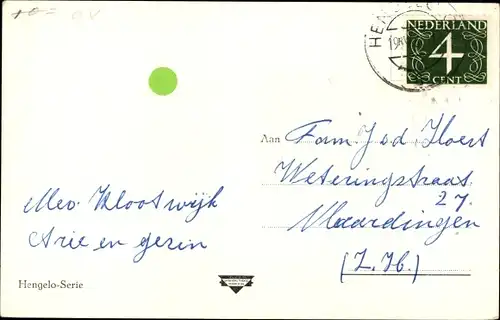 HENGELO
NEDERLAND
4
CENT
Aan
Fam. Jod. Hoert
Weteringstraat
27.
Vlaardingen
(Z.H.)
Mev. Kloostwijk
Arie en gezin
Hengelo-Serie